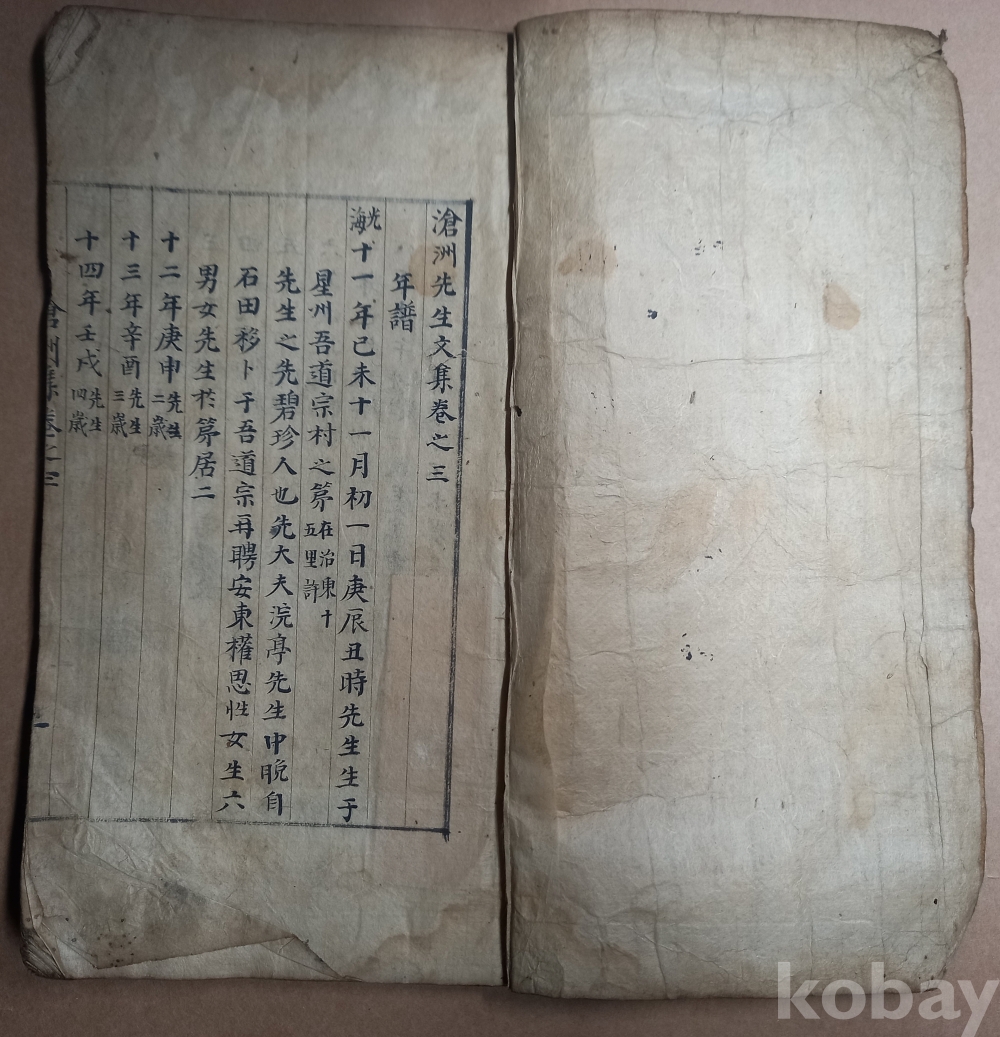 滄洲先生文集卷之三
年譜
光海十一年己未十一月初一日庚辰丑時先生生于
星州吾道宗村之第在治東十五里許
先生之先碧珍人也先大夫浣亭先生中晩自
石田移卜于吾道宗再聘安東權思性女生六
男女先生於第居二
十二年庚申先生二歲
十三年辛酉先生三歲
十四年壬戌先生四歲
滄洲集卷之三
kobay